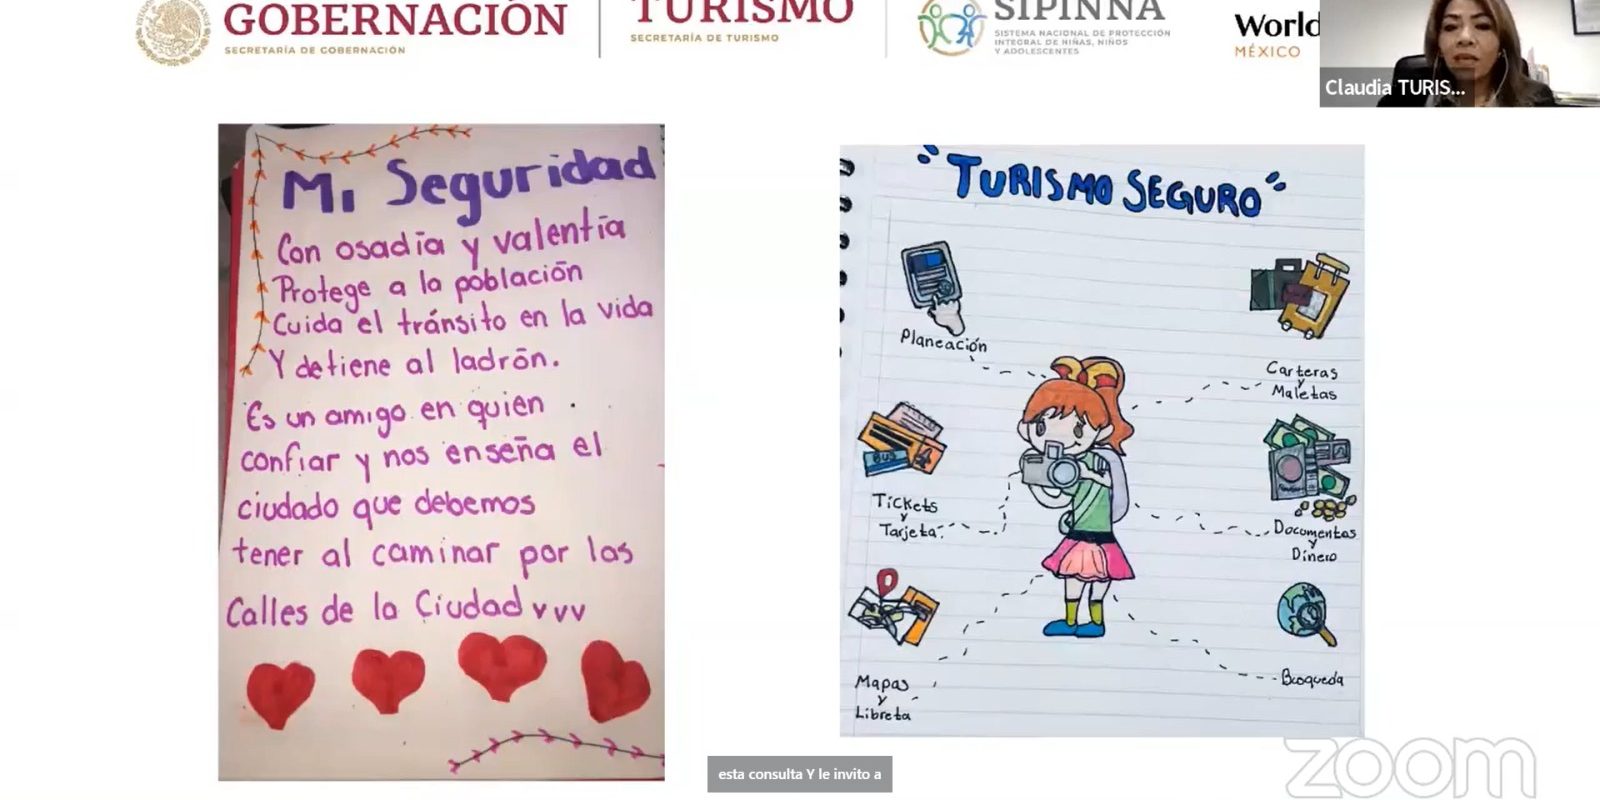 GOBERNACIÓN
SECRETARÍA DE GOBERNACIÓN
TURISMO
SECRETARÍA DE TURISMO
SIPINNA
SISTEMA NACIONAL DE PROTECCIÓN
INTEGRAL DE NIÑAS, NIÑOS
Y ADOLESCENTES
World
MÉXICO
Claudia TURIS...
Mi Seguridad
Con osadía y valentía
Protege a la población
Cuida el tránsito en la vida
Y detiene al ladrón.
Es un amigo en quien
confiar y nos enseña el
ciudado que debemos
tener al caminar por las
Calles de la Ciudad
"TURISMO SEGURO"
Planeación
Carteras
y
Maletas
BUS
Tickets
y
Tarjeta.
Documentos
y
Dinero
Mapas
y
Libreta
Búsqueda
esta consulta Y le invito a
zoom